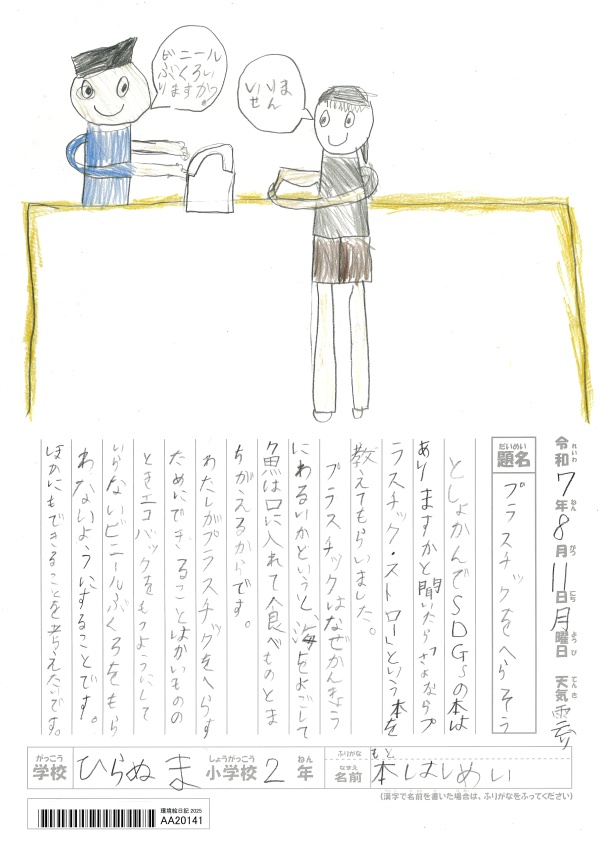 ビニール
ぶくろい
りますか?
いりま
せん
令和7年8月11日月曜日 天気 雲り
れいわ ねん がつ にち ようび てんき
だいめい
題名
プラスチックをへらそう
としょかんでSDGsの本は
ありますかと聞いたら「さよならプ
ラスチック・ストロー」という本を
教えてもらいました。
プラスチックはなぜかんきょう
にわるいかというと、海をよごして
魚は口に入れて食べものとま
ちがえるからです。
わたしがプラスチックをへらす
ためにできることはかいものの
ときエコバックをもつようにして
いらないビニールぶくろをもら
わないようにすることです。
ほかにもできることを考えたいです。
がっこう しょうがっこう ねん
学校 ひらぬま 小学校 2年
ふりがな もと
なまえ
名前 本しはいめい
(漢字で名前を書いた場合は、ふりがなをふってください)
環境絵日記 2025
AA20141